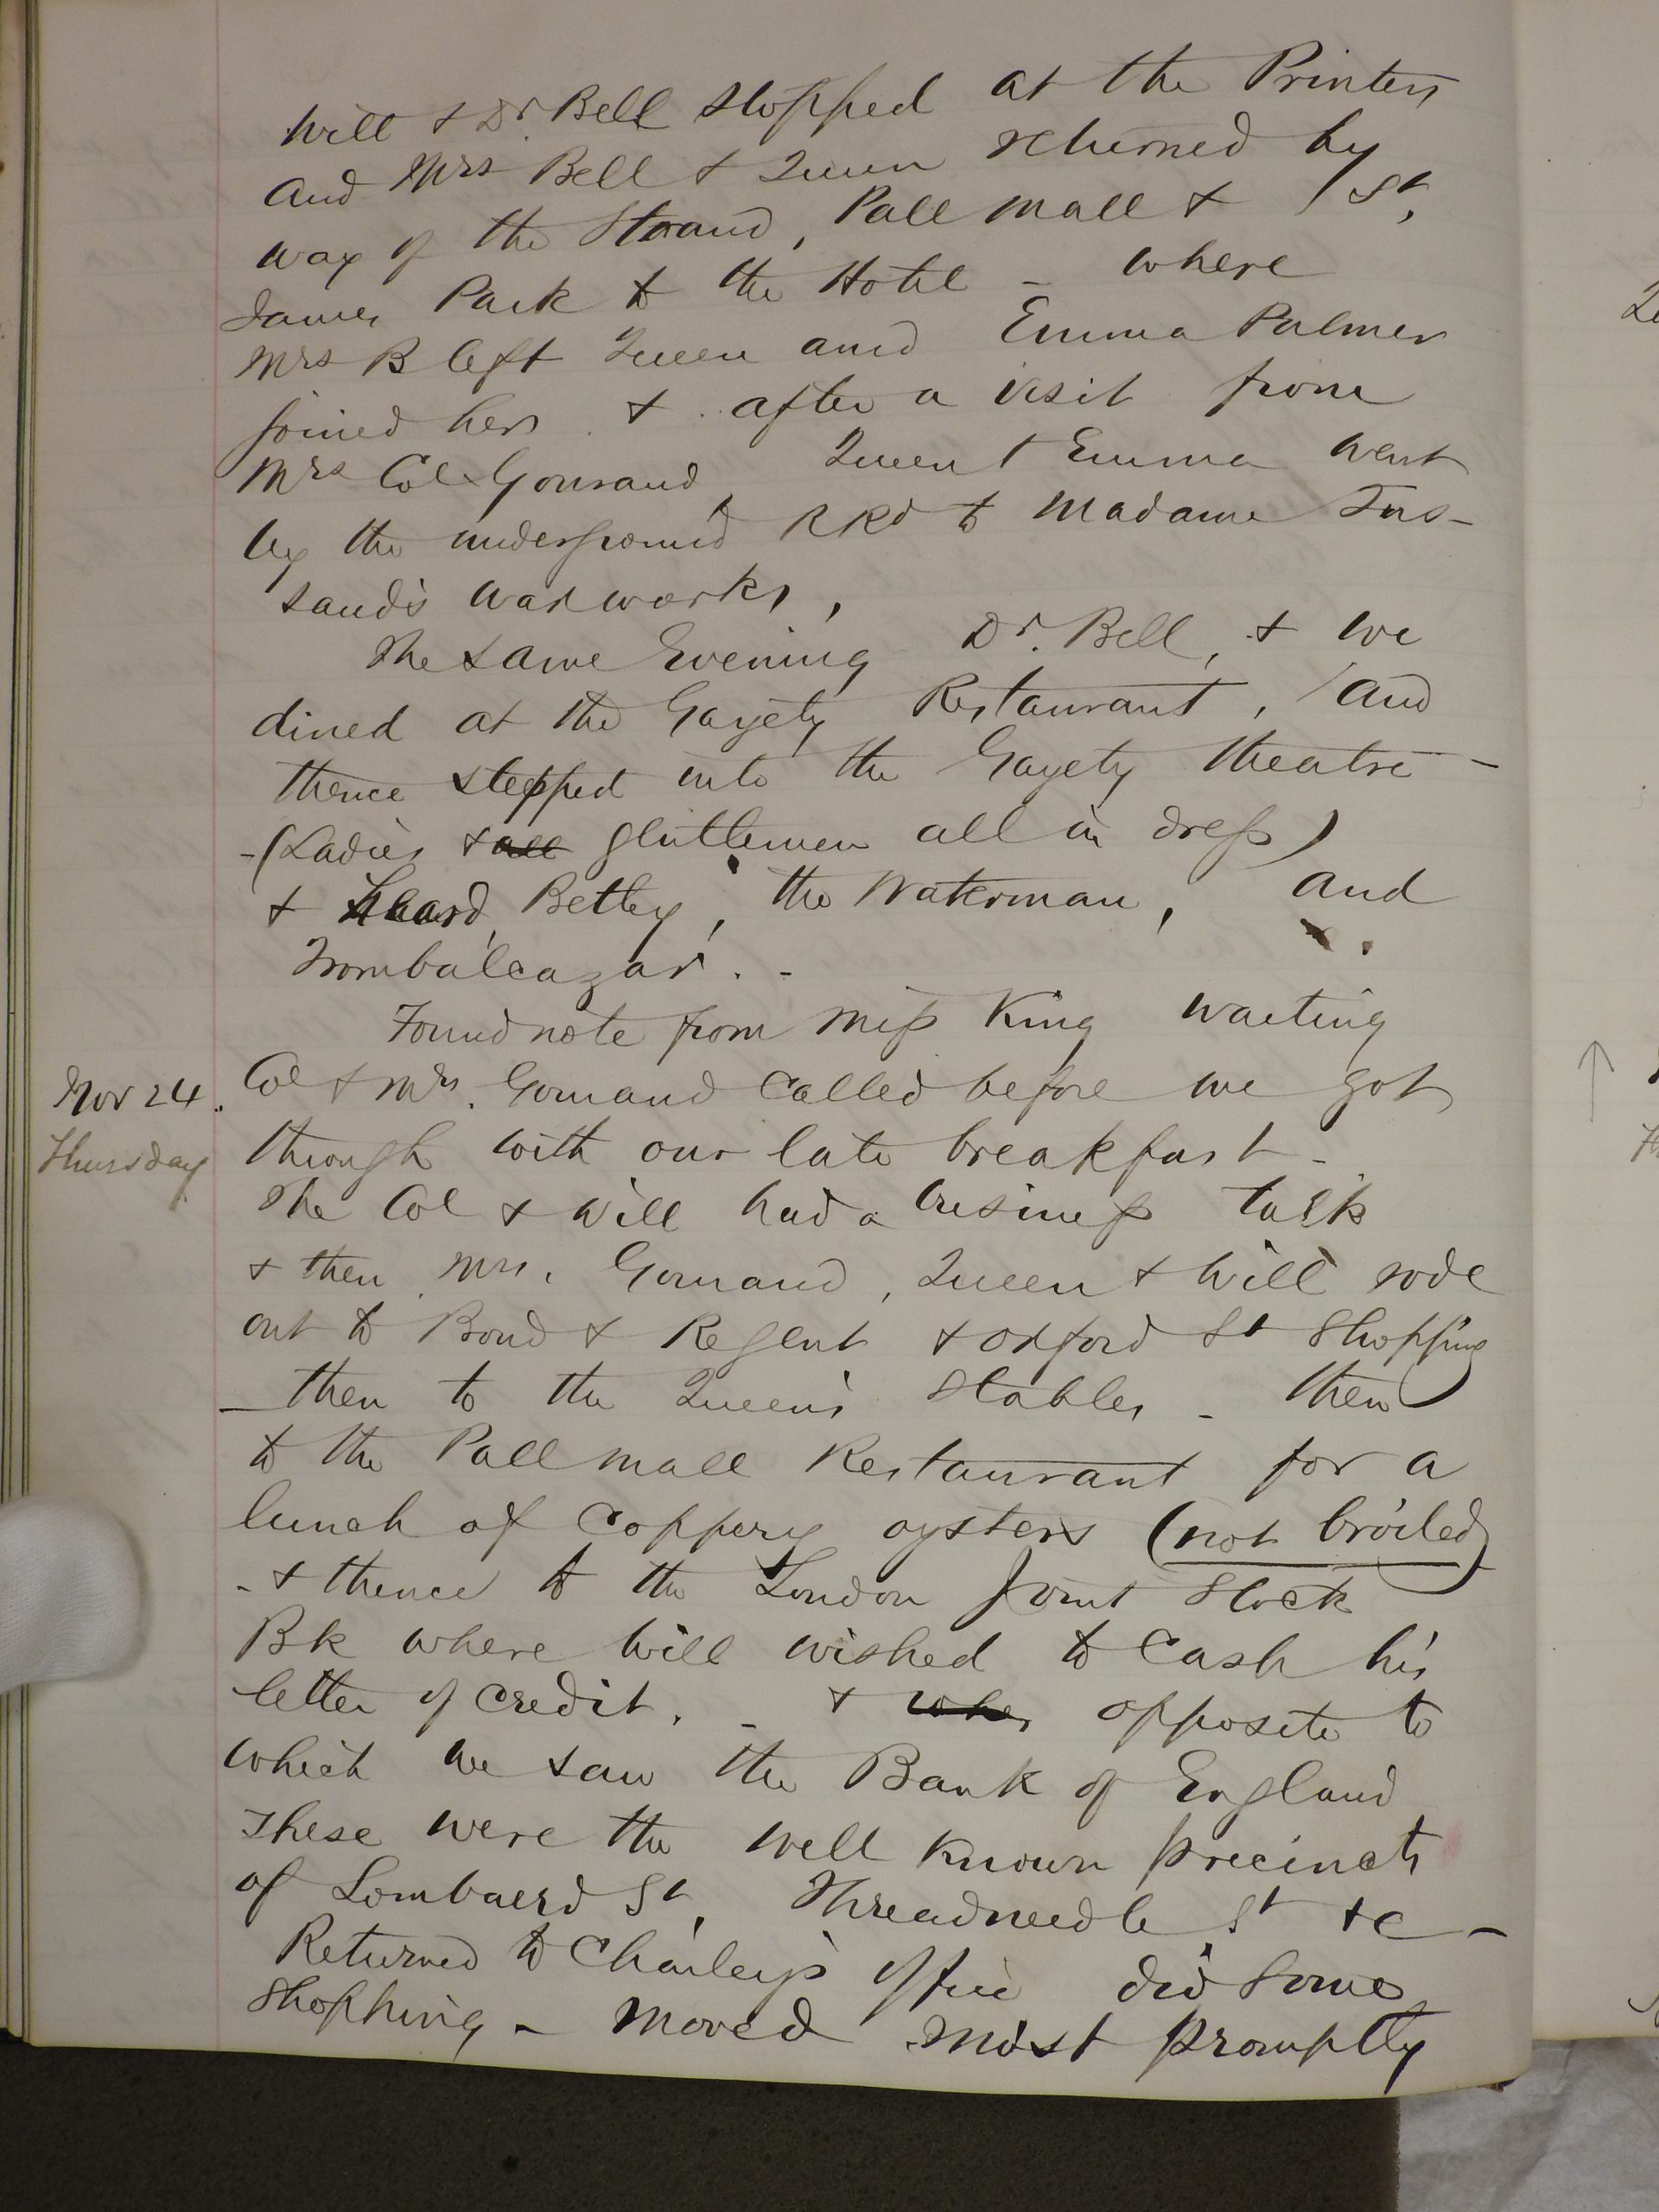 Will & Dr Bell stopped at the Printers
and Mrs Bell & Queen returned by
way of the Strand, Pall Mall & St,
James Park to the Hotel - where
Mrs B left Queen and Emma Palmer
joined her & after a visit from
Mrs Col Gouraud, Queen & Emma went
by the underground RRd to Madame Tus-
saud's waxworks,
The same Evening Dr. Bell, & we
dined at the Gayety Restaurant, and
thence stepped into the Gayety theatre -
-(Ladies & all gentlemen all in dress)
& heard, Betley, the Waterman, and
Trombalcazar. -
Found note from Miss King waiting
Nov 24. Col & Mrs. Gouraud called before we got
Thursday through with our late breakfast -
The Col & Will had a business talk
& then Mrs. Gouraud, Queen & Will rode
out to Bond & Regent & Oxford St Shopping
- then to the Queen's Stables - then
to the Pall Mall Restaurant for a
lunch of Coppery oysters (not broiled)
- & thence to the London Joint Stock
Bk where Will wished to Cash his
letter of credit. - & wher opposite to
which we saw the Bank of England
These were the well known precincts
of Lombaerd St, Threadneedle St &c -
Returned to Charley's office did some
Shopping - moved most promptly